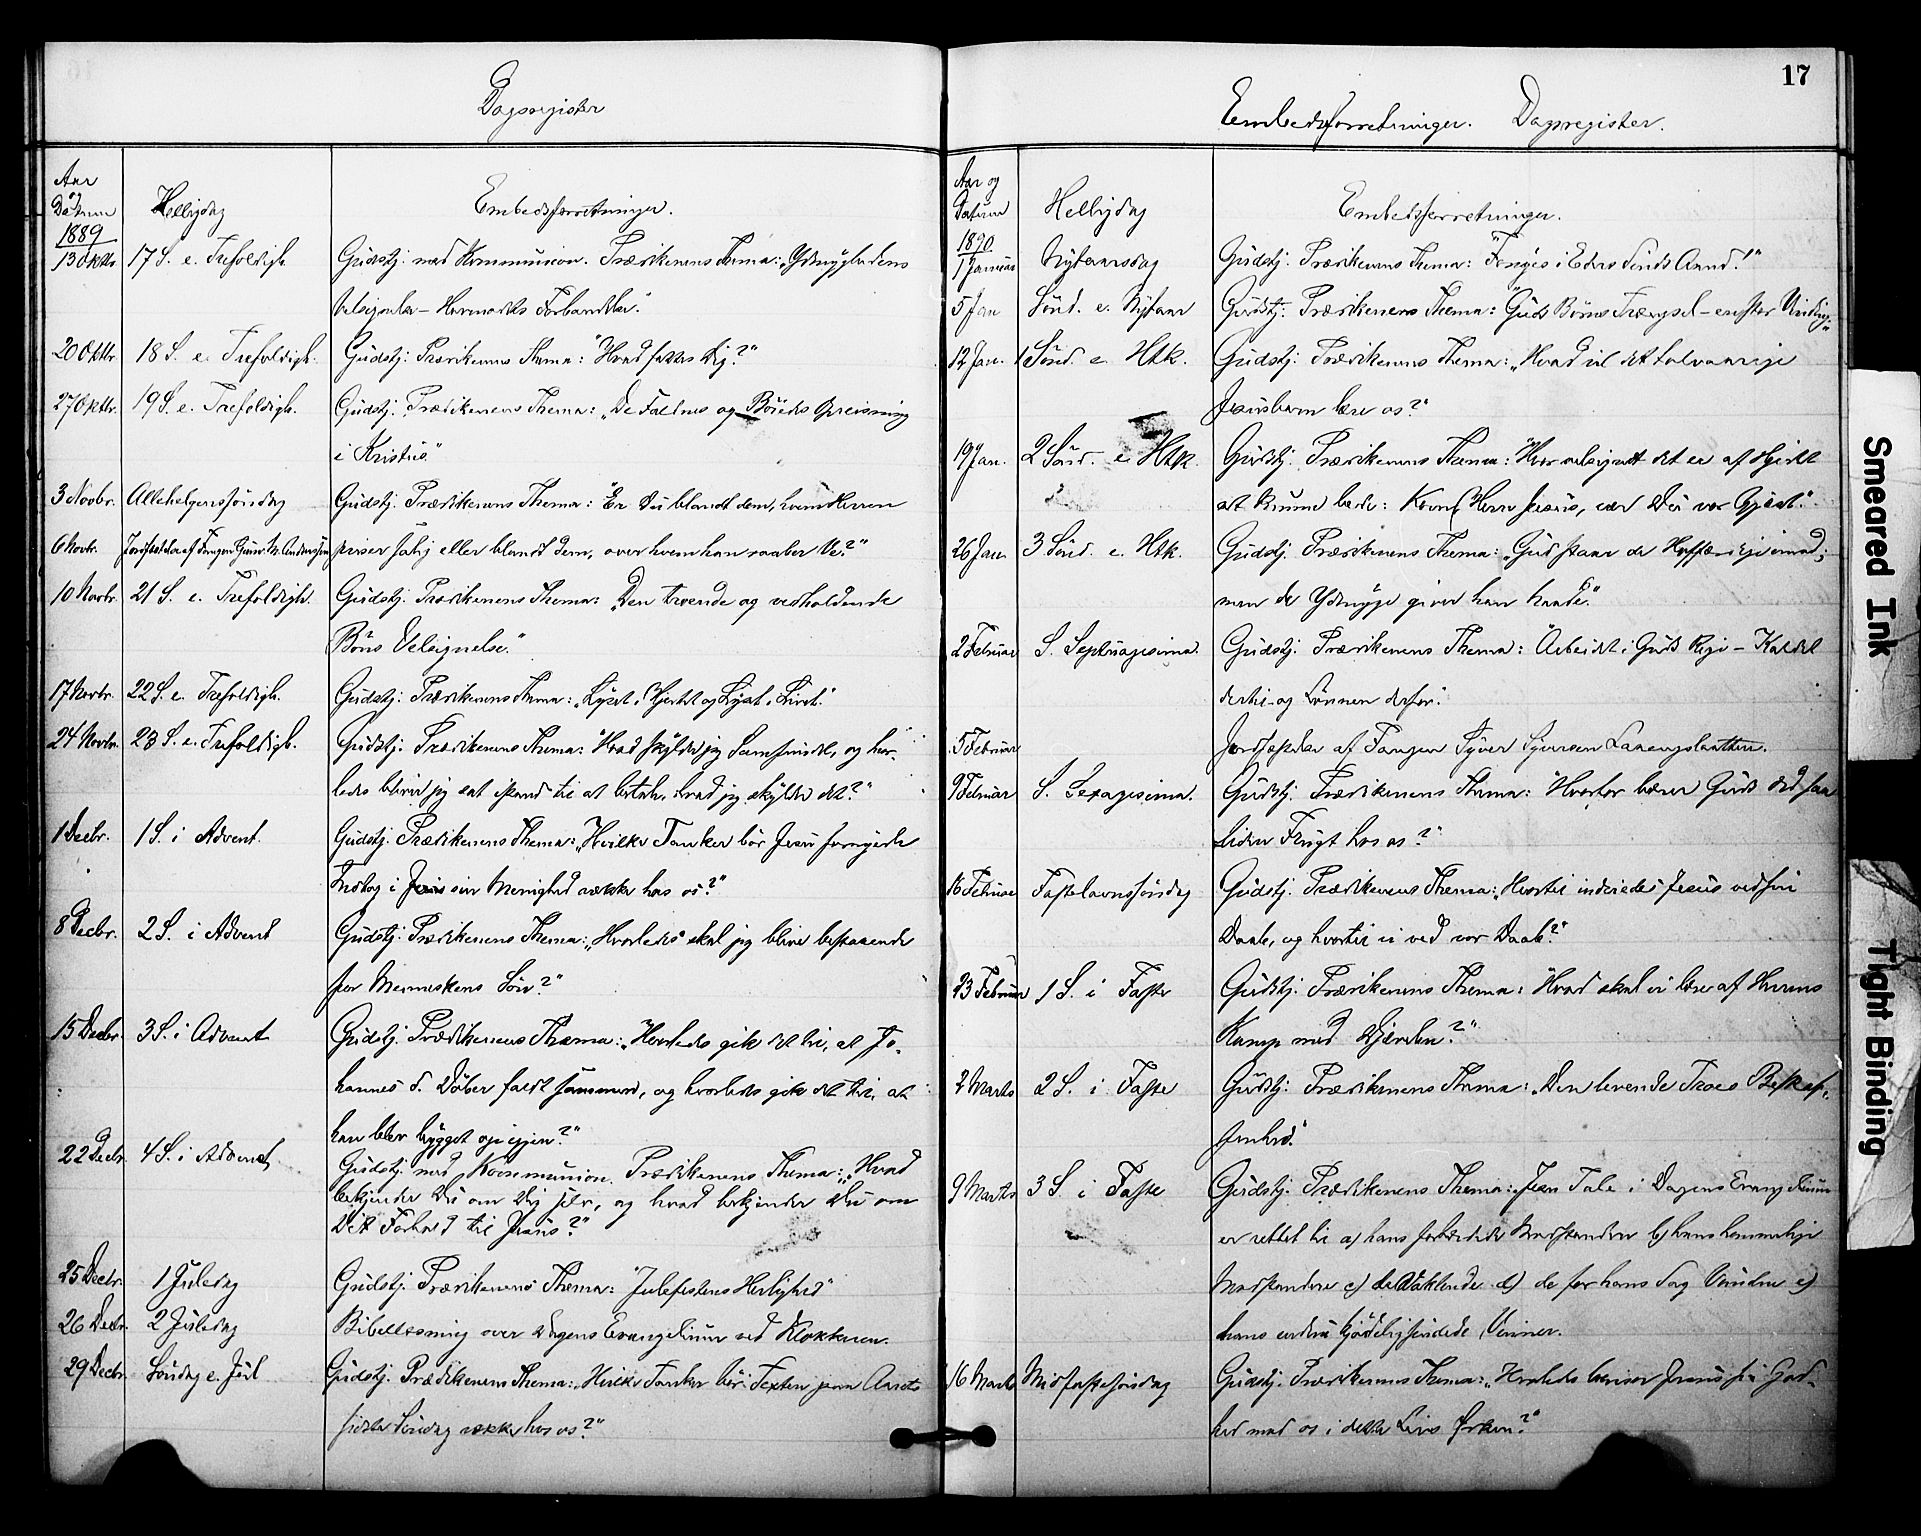 Dagsregister
Aar
og
Datum Helligdag Embedsforretninger.
1889
13 Oktbr. 17 S. e. Trefoldigh. Gudstj. med Kommunion. Prædikenens Thema: „Ydmyghedens
Velsignelse – Hovmodets Forbandelse."
20 Oktbr. 18 S. e. Trefoldigh. Gudstj. Prædikenens Thema: "Hvad fattes Dig?"
27 Oktbr. 19 S. e. Trefoldigh. Gudstj. Prædikenens Thema: „De Faldnes og Opreisning
i Kristus."
3 Novbr. Allehelgenssöndag Gudstj. Prædikenens Thema: "Er Du blandt dem, hvem Herren
6 Novbr. Jordfæstelse af Fangen priser salig eller blandt dem, over hvem han raaber Ve?"
10 Novbr. 21 S. e. Trefoldigh. Gudstj. Prædikenens Thema: „Den troende og vedholdende
Böns Velsignelse."
17 Novbr. 22 S. e. Trefoldigh. Gudstj. Prædikenens Thema: „Lyset i Hjertet og Lyset i Livet."
24 Novbr. 23 S. e. Trefoldigh. Gudstj. Prædikenens Thema: "Hvad skylder jeg Samfundet, og hvor-
ledes bliver jeg sat istand til at betale, hvad jeg skylder det?"
1 Decbr. 1 S. i Advent. Gudstj. Prædikenens Thema: „Hvilke Tanker bör Jesu fornyede
Indtog i sin Menighed vække hos os?"
8 Decbr. 2 S. i Advent Gudstj. Prædikenens Thema: „Hvorledes skal jeg blive bestaaende
for Menneskens Sön?"
15 Decbr. 3 S. i Advent Gudstj. Prædikenens Thema: „Hvorledes gik det til, at Jo-
hannes d. Döber faldt sammen, og hvorledes gik det til, at
han blev bygget op igjen?"
22 Decbr. 4 S. i Advent Gudstj. med Kommunion. Prædikenens Thema: „Hvad
bekjender Du om Dig selv, og hvad bekjender Du om
Dit Forhold til Jesus?"
25 Decbr. 1 Juledag Gudstj. Prædikenens Thema: "Julefestens Herlighed"
26 Decbr. 2 Juledag Bibellæsning over Dagens Evangelium ved Klokkeren.
29 Decbr. Söndag e. Jul Gudstj. Prædikenens Thema: „Hvilke Tanker bör Texten paa Aarets
sidste Söndag vække hos os?"
17
Embedsforretninger. Dagsregister.
Aar og
Datum Helligdag Embedsforretninger.
1890
1 Januar Nytaarsdag Gudstj. Prædikenens Thema: "Fornyes i Eders Sinds Aand!"
5 Jan Sönd. e. Nytaar Gudstj. Prædikenens Thema: "Guds Börns Trængsel –
12 Jan. 1 Sönd. e. Htk. Gudstj. Prædikenens Thema: „Hvad vil det tolvaarige
Jesusbarn lære os?"
19 Jan. 2 Sönd. e. Htk. Gudstj. Prædikenens Thema: "Hvor velsignet det er af Hjertet
at kunne bede: Kom, Herre Jesus, vær Du vor Gjæst."
26 Jan. 3 Sönd. e. Htk. Gudstj. Prædikenens Thema: „Gud staar de Hoffærdige imod;
men de Ydmyge giver han Naade."
2 Februar S. Septuagesima. Gudstj. Prædikenens Thema: "Arbeidet i Guds Rige – Kaldet
dertil og Lönnen derfor."
5 Februar Jordfæstelse af Fangen Syver Syversen
9 Februar S. Sexagesima. Gudstj. Prædikenens Thema: "Hvorfor bærer Guds Ord saa
liden Frugt hos os?"
16 Februar Fastelavnssöndag Gudstj. Prædikenens Thema: „Hvortil indviedes Jesus ved sin
Daab, og hvortil vi ved vor Daab?"
23 Februar 1 S. i Faste Gudstj. Prædikenens Thema: "Hvad skal vi lære af Herrens
Kamp med Djævelen?"
2 Marts 2 S. i Faste Gudstj. Prædikenens Thema: „Den levende Troes Beskaf-
fenhed."
9 Marts 3 S. i Faste Gudstj. Prædikenens Thema: „Jesu Tale i Dagens Evangelium
er rettet til a) hans forbittrede Modstandere b) hans hemmelige
Modstandere c) de Vaklende d) de for hans Sag Vundne e)
hans endnu Venner.
16 Marts Midfastesöndag Gudstj. Prædikenens Thema: „Hvorledes beviser Jesus sin God-
hed mod os i dette Livs Ørken?"
Smeared Ink
Tight Binding